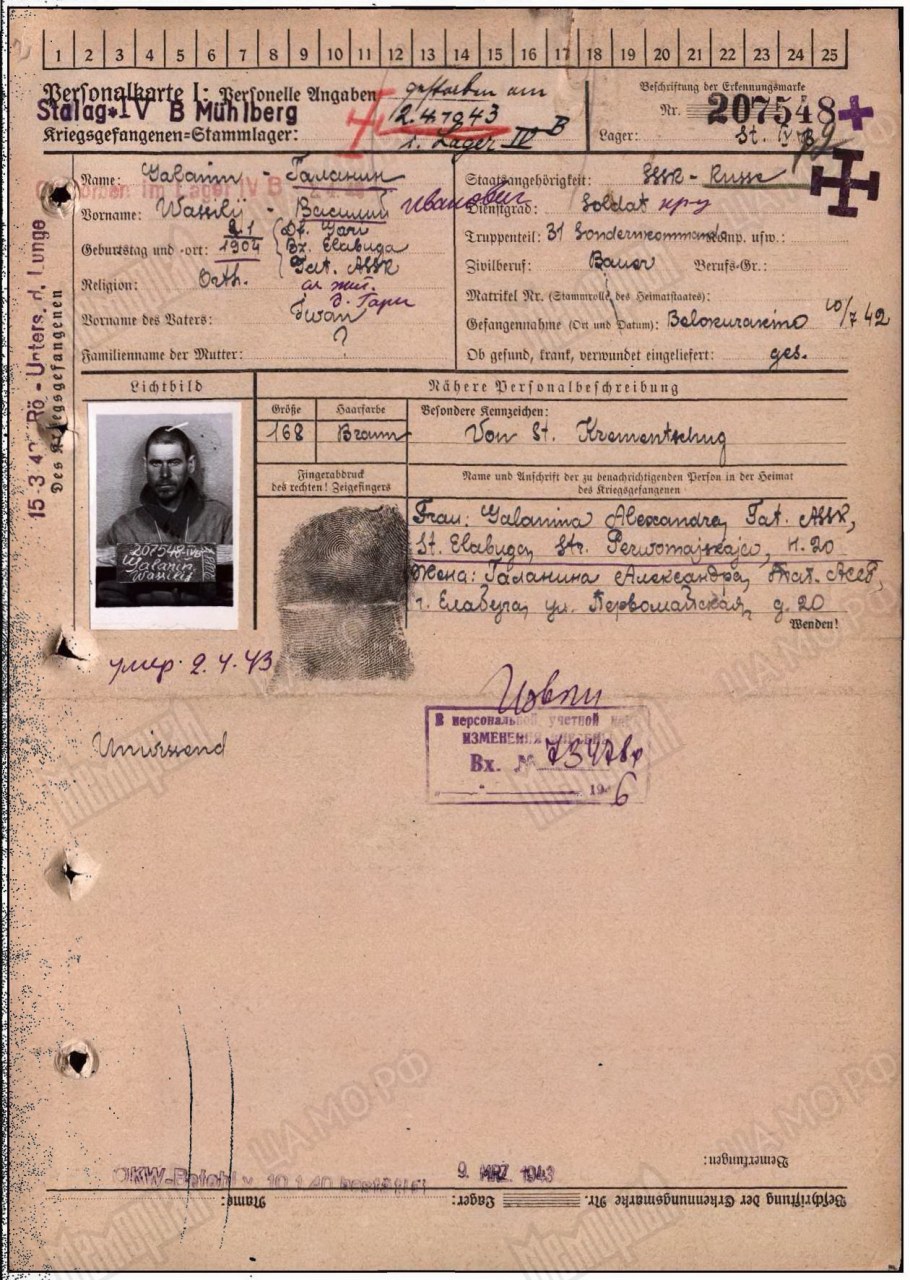 1 2 3 4 5 6 7 8 9 10 11 12 13 14 15 16 17 18 19 20 21 22 23 24 25
Personalkarte I: Personelle Angaben
Stalag IV B Mühlberg
Kriegsgefangenen-Stammlager:
gestorben am
2.4.1943
i. Lager IV B
Beschriftung der Erkennungsmarke
Nr. 207548
Lager: St. IV B
Name: Galanin - Галанин
im Lager IV B
Vorname: Wassilij - Василий Иванович
Geburtstag und -ort: 1904 Df. Gari
Bz. Elabuga
Tat. ASSR
Religion: Orth.
д. Гари
Vorname des Vaters: Iwan
Familienname der Mutter: ?
Staatsangehörigkeit: SSSR - Russe
Dienstgrad: Soldat кр-ц
Truppenteil: 31 Sonderkommando Komp. usw.:
Zivilberuf: Bauer Berufs-Gr.:
Matrikel Nr. (Stammrolle des Heimatstaates):
Gefangennahme (Ort und Datum): Belokurakino 10/7 42
Ob gesund, krank, verwundet eingeliefert: ges.
15.3.43 Rö - Unters. d. Lunge
Des Kriegsgefangenen
Lichtbild
Nähere Personalbeschreibung
Größe Haarfarbe Besondere Kennzeichen:
168 Braun Von St. Krementschug
Fingerabdruck
des rechten! Zeigefingers
Name und Anschrift der zu benachrichtigenden Person in der Heimat
des Kriegsgefangenen
207548 IVB
Galanin
Wassilij
Frau: Galanina Alexandra, Tat. ASSR,
St. Elabuga, Str. Perwomajskaja, H. 20
Жена: Галанина Александра, Тат. АССР,
г. Елабуга, ул. Первомайская, д. 20
Wenden!
умер. 2.4.43
В персональной учетной
ИЗМЕНЕНИЯ
Вх. № 73478
1946
Bemerkungen:
9. MRZ 1943
OKW-Befehl v.
Beschriftung der Erkennungsmarke Nr. Lager: Name:
Мемориал
ЦАМО.РФ